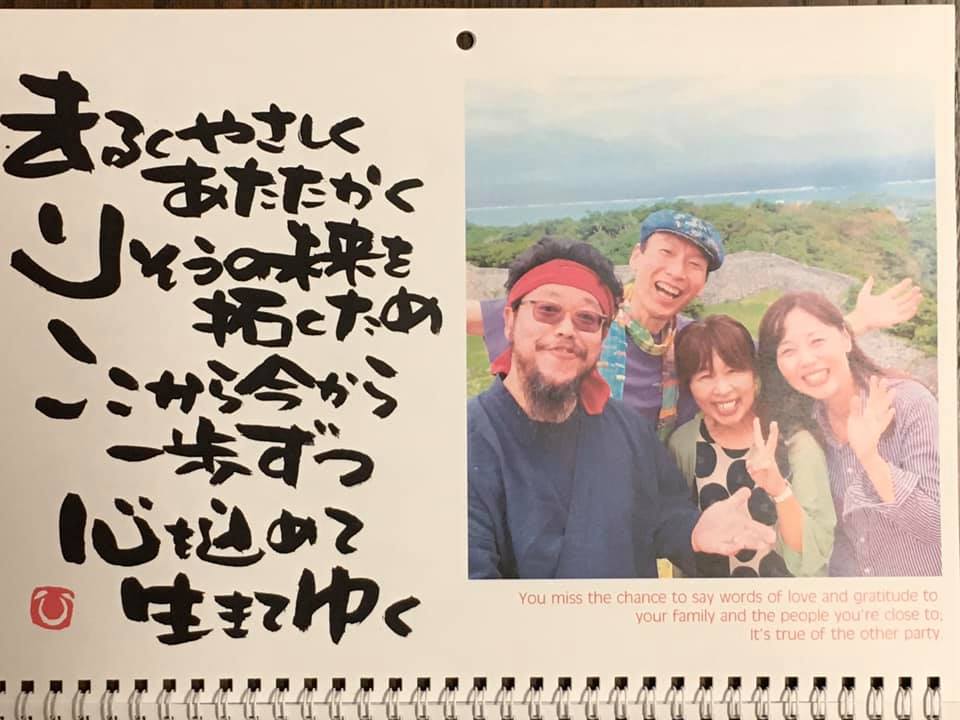 まるくやさしく
あたたかく
りそうの未来を
拓くため
ここから今から
一歩ずつ
心を込めて
生きてゆく
You miss the chance to say words of love and gratitude to
your family and the people you're close to;
It's true of the other party.